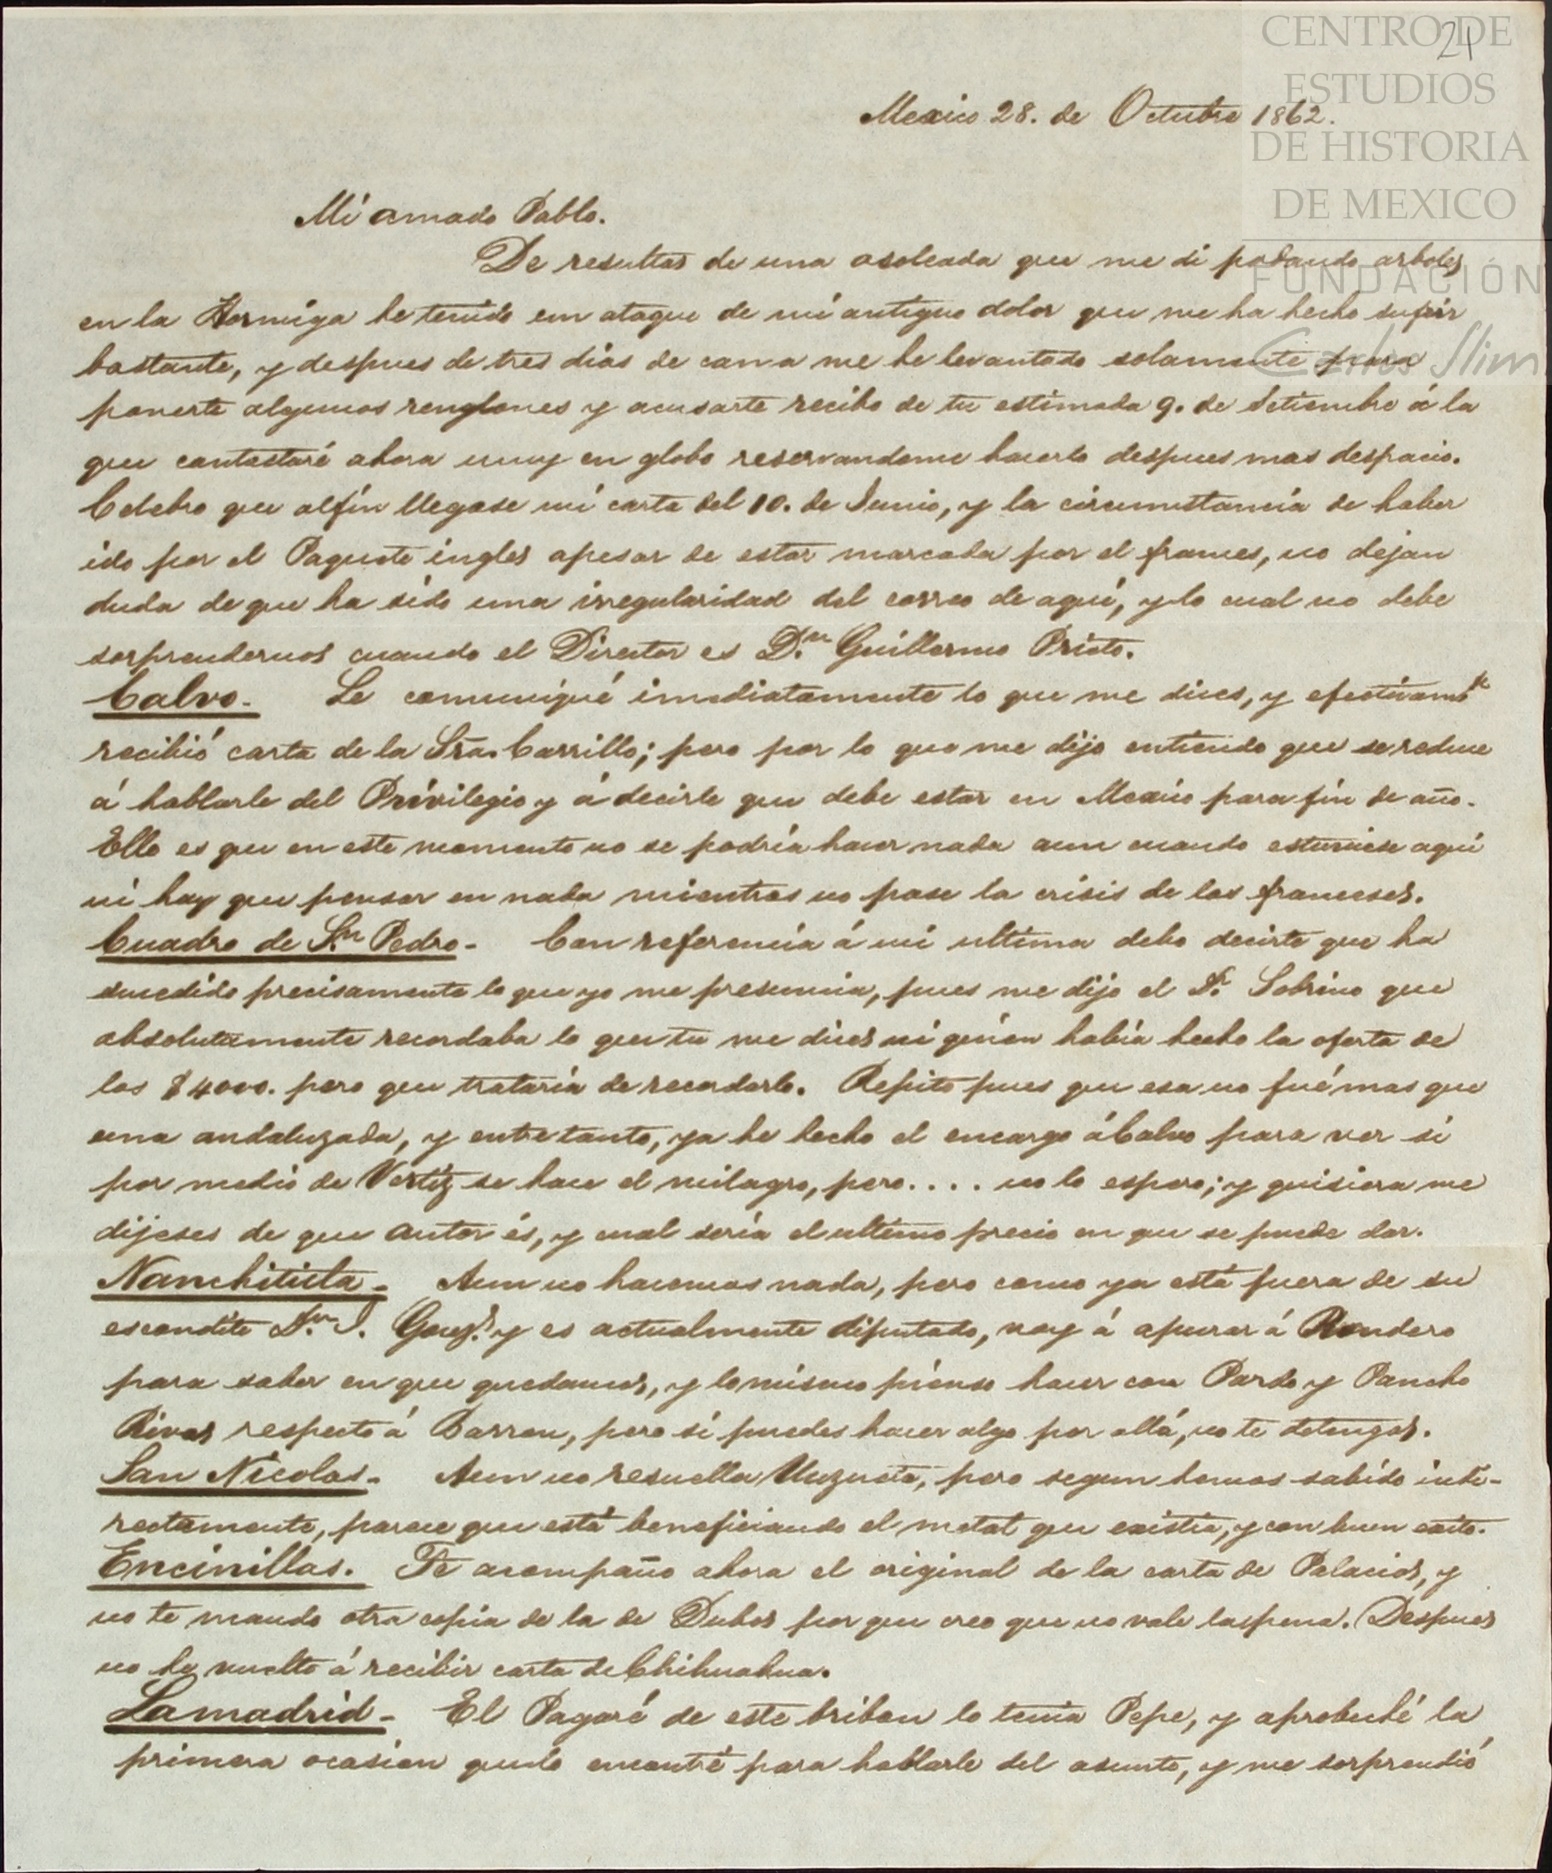 CENTRO DE
ESTUDIOS
DE HISTORIA
DE MEXICO
FUNDACIÓN
Carlos Slim
21
Mexico 28. de Octubre 1862.
Mi amado Pablo.
De resultas de una asoleada que me di podando arboles
en la Hormiga he tenido un ataque de mi antiguo dolor que me ha hecho sufrir
bastante, y despues de tres dias de cama me he levantado solamente para
ponerte algunos renglones y acusarte recibo de tu estimada 9. de Setiembre á la
que contestaré ahora muy en globo reservandome hacerlo despues mas despacio.
Celebro que alfin llegase mi carta del 10. de Junio, y la circunstancia de haber
ido por el Paquete ingles apesar de estar marcada por el frances, no dejan
duda de que ha sido una irregularidad del correo de aqui, y lo cual no debe
sorprendernos cuando el Director es D.n Guillermo Prieto.
Calvo. Le comuniqué imediatamente lo que me dices, y efectivamte
recibió carta de la Sra. Carrillo; pero por lo que me dijo entiendo que se reduce
á hablarle del Privilegio y á decirle que debe estar en Mexico para fin de año.
Ello es que en este momento no se podria hacer nada aun cuando estuviese aqui
ni hay que pensar en nada mientras no pase la crisis de los franceses.
Cuadro de Sn. Pedro. Con referencia á mi ultima debo decirte que ha
sucedido precisamente lo que yo me presumia, pues me dijo el Sr. Sobrino que
absolutamente recordaba lo que tu me dices ni quien habia hecho la oferta de
los $4000. pero que trataria de recordarlo. Repito pues que esa no fué mas que
una andaluzada, y entre tanto, ya he hecho el encargo á Calvo para ver si
por medio de Vertiz se hace el milagro, pero.... no lo espero; y quisiera me
dijeses de que autor és, y cual seria el ultimo precio en que se puede dar.
Nanchititla. Aun no hacemos nada, pero como ya está fuera de su
escondite Dn. J. Gonz. y es actualmente diputado, voy á apurar á Rondero
para saber en que quedamos, y lo mismo pienso hacer con Pardo y Pancho
Rivas respecto á Barron, pero si puedes hacer algo por allá, no te detengas.
San Nicolas. Aun no resuella Unzueta, pero segun hemos sabido indi-
rectamente, parece que está beneficiando el metal que existia, y con buen exito.
Encinillas. Te acompaño ahora el original de la carta de Palacios, y
no te mando otra copia de la de Dubos por que creo que no vale la pena. Despues
no he vuelto á recibir carta de Chihuahua.
Lamadrid. El Pagaré de este bribon lo tenia Pepe, y aprobeché la
primera ocasion que lo encontré para hablarle del asunto, y me sorprendió